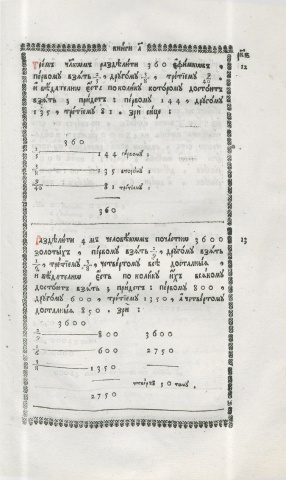 книги А҃
Тремъ члкомъ раздѣлити 360 ефимковъ,
первому взять 2/5, другому 3/8, третїему 9/40
и вѣдателно есть поколику которому достоитъ
взять 3 прїидетъ: первому 144, другому
135, третїему 81. зри сице:
12
360
2/5 144 первому:
3/8 135 второму:
9/40 81 третїему:
360
Раздѣлити 4 мъ человѣкомъ
3600
золотыхъ, первому взять
другому взять
1/6, третїему 3/8, четвертому всѣ досталныя,
и вѣдателно есть по колику ихъ всякому
достоитъ взять 3 прїидетъ: первому 800,
другому 600, третїему: 1350, а четвертому
досталныя 850. зри:
13
3600
2/9 800 3600
1/6 600 2750
3/8 1350
2750